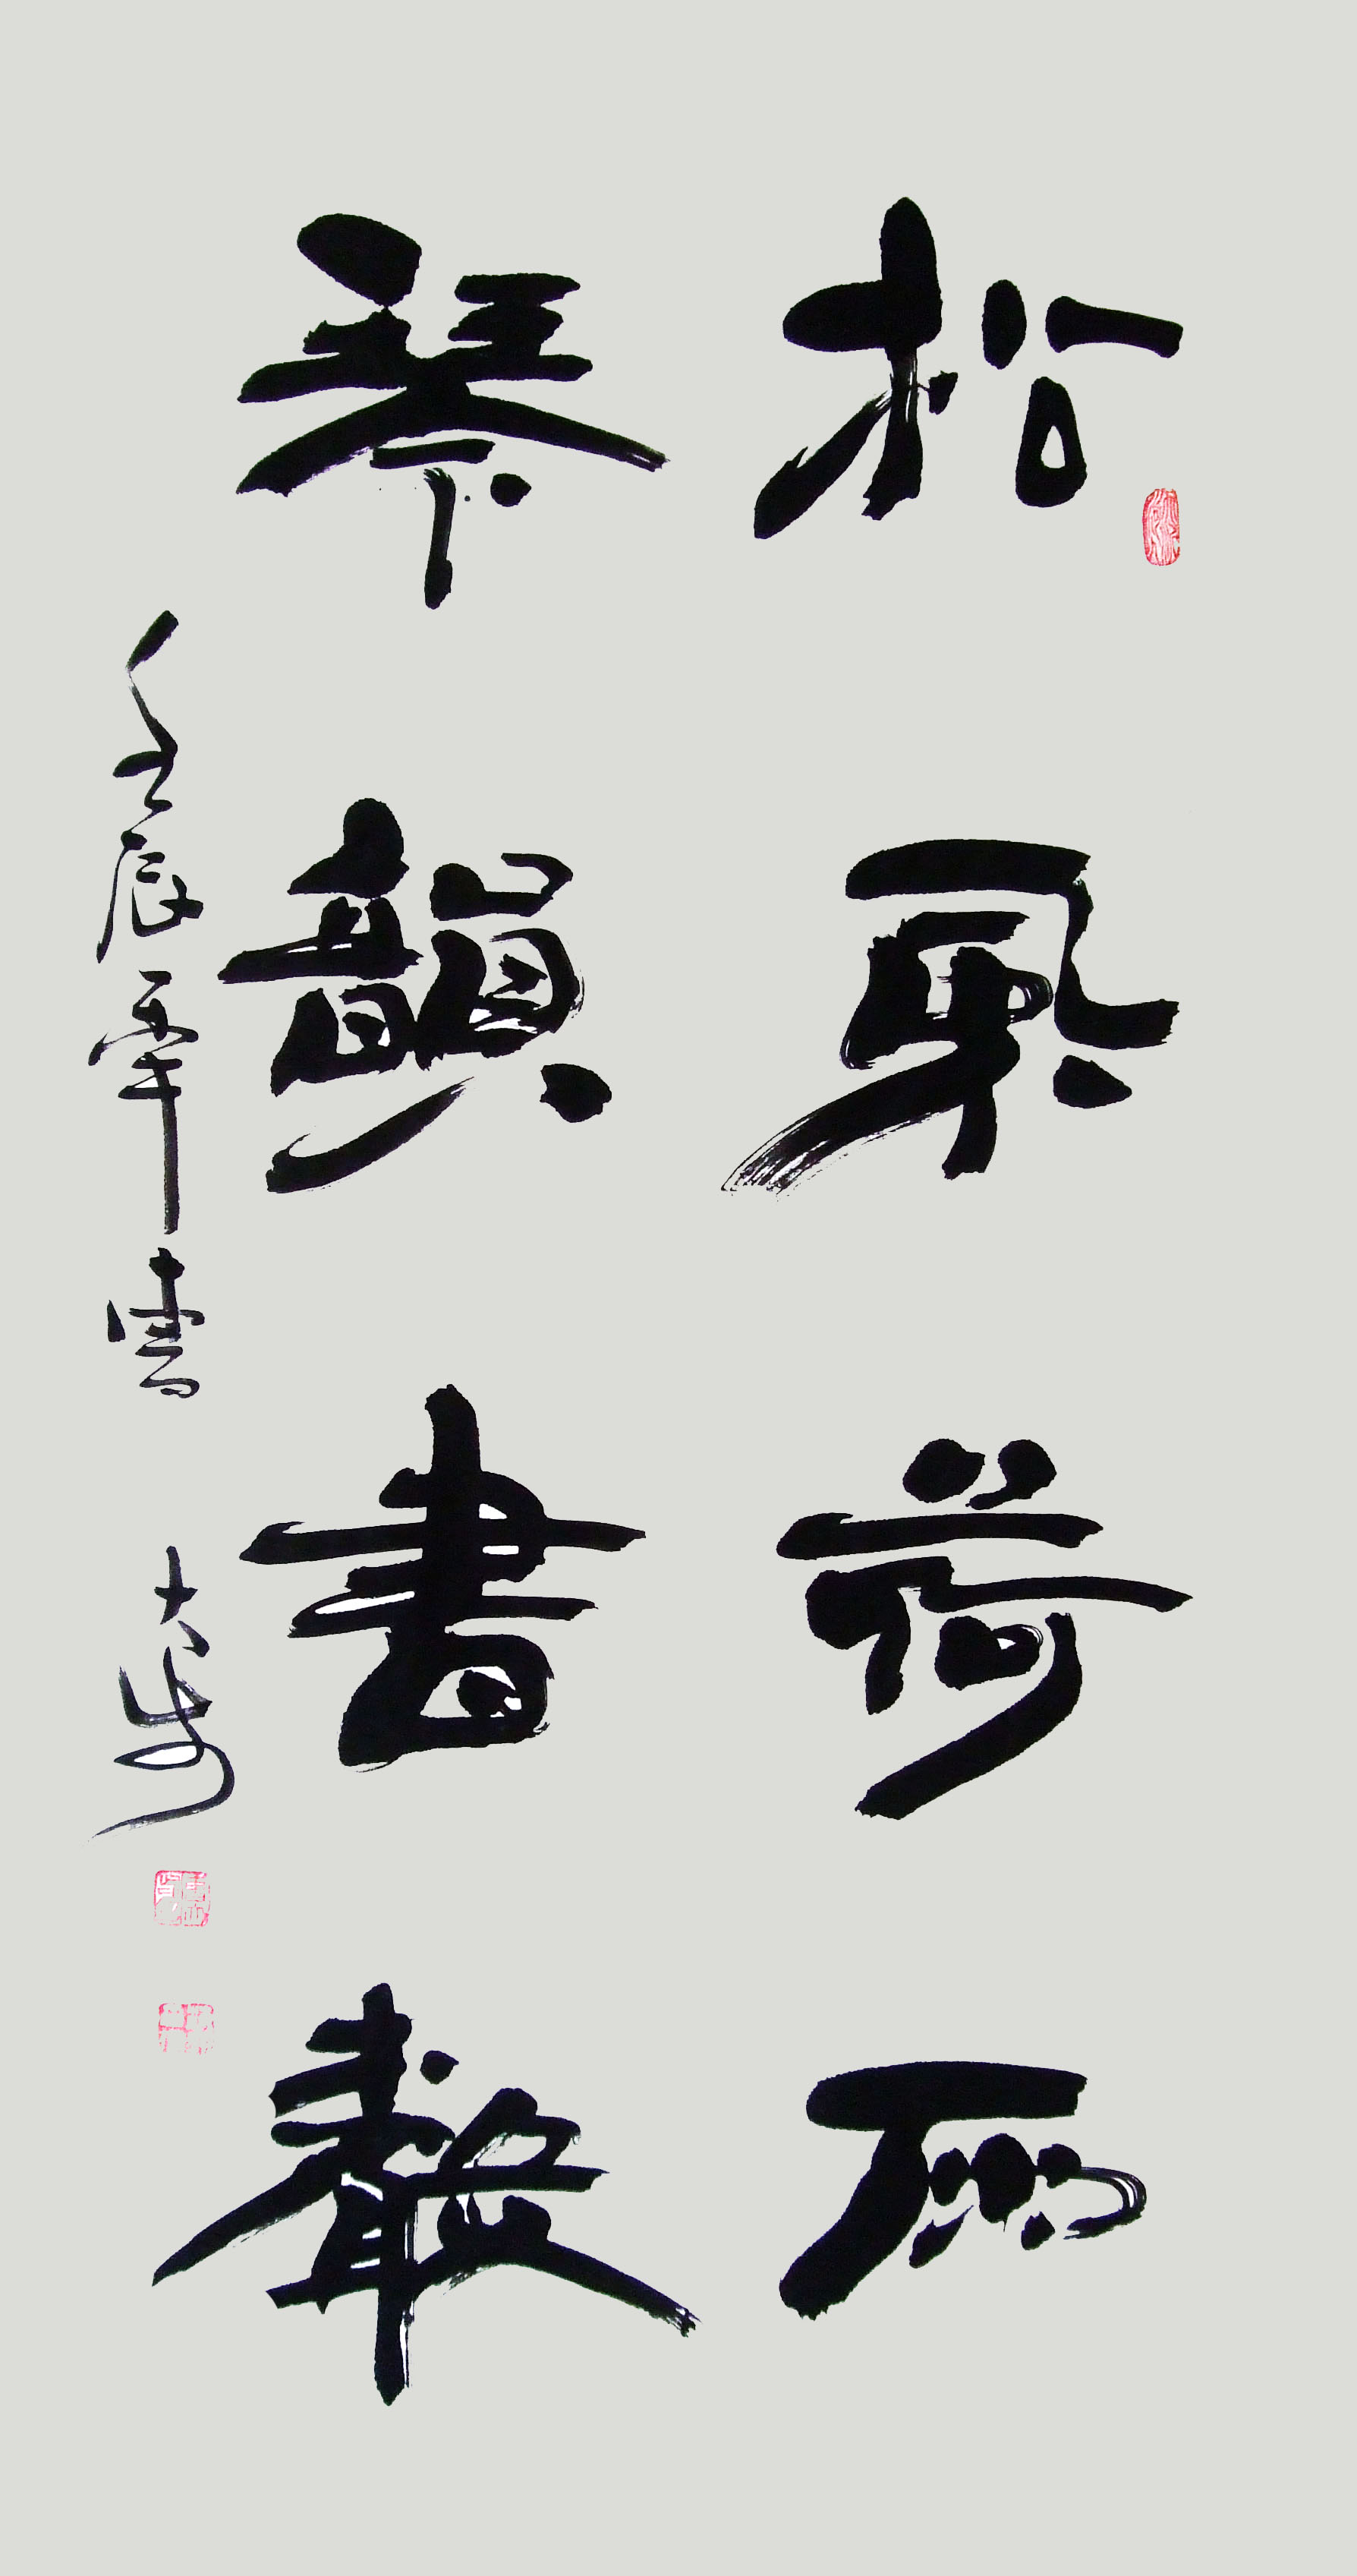 松風荷雨
琴韻書聲
壬辰年書 大步